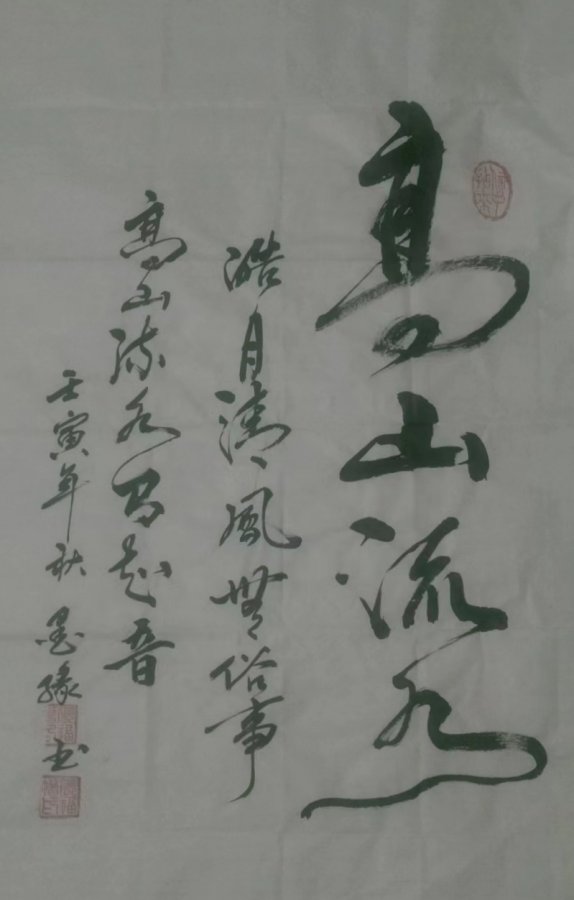 高山流水
皓月清風無俗事
高山流水有知音
壬寅年秋 墨緣 书